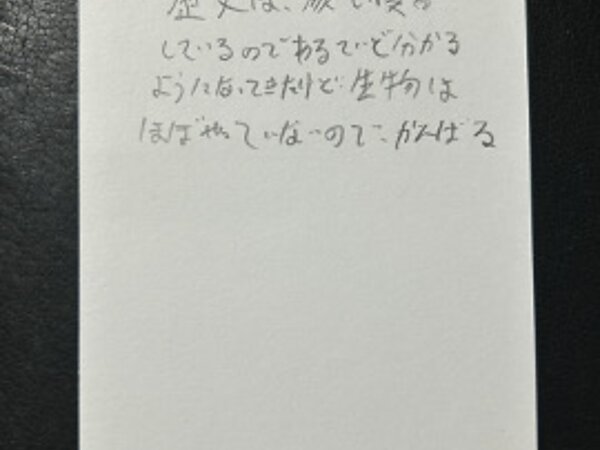 歴史は、
しているのであるていど分かる
ようになってきたけど、生物は
ほぼやっていないので、がんばる